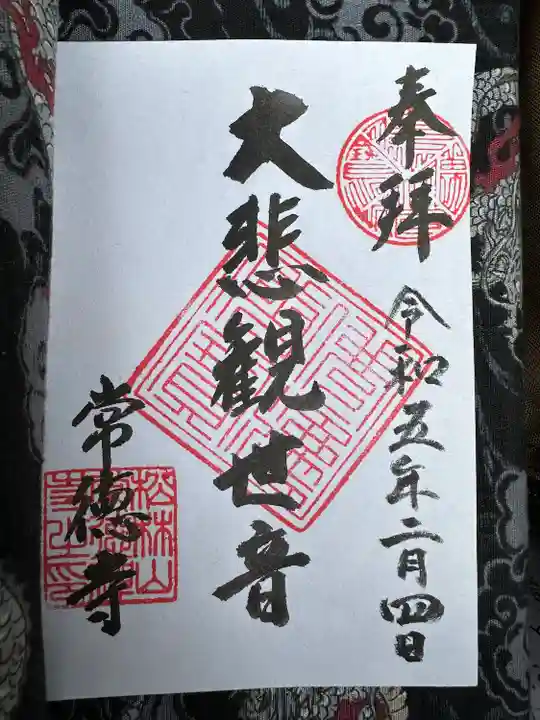 奉拝
令和五年二月四日
大悲観世音
常徳寺
松林山